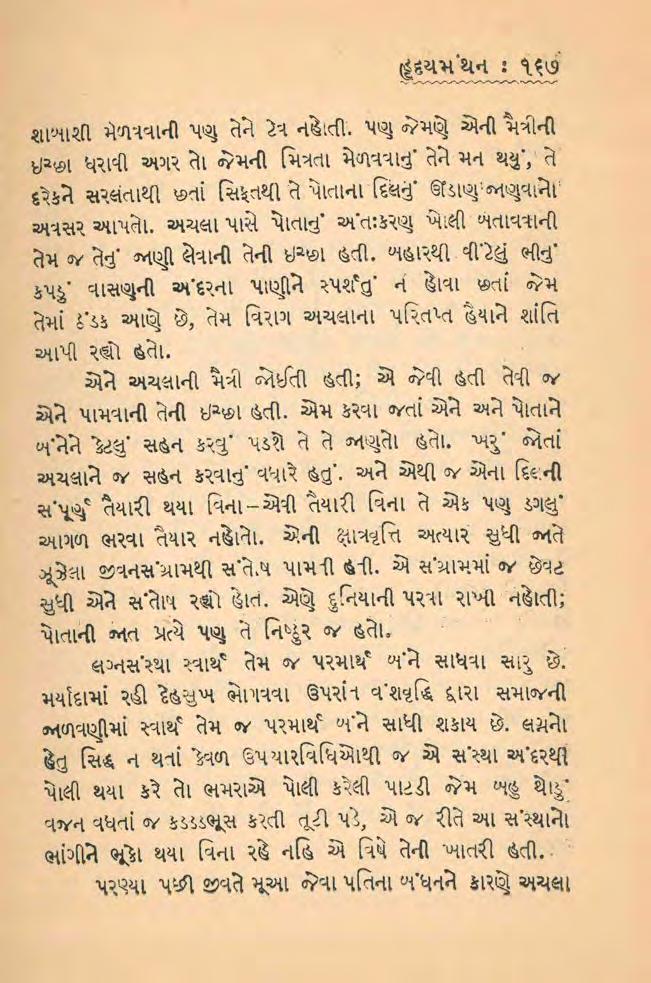 હૃદયમંથન : ૧૬૭
શાબાશી મેળવવાની પણ તેને ટેવ નહોતી. પણ જેમણે એની મૈત્રીની
ઇચ્છા ધરાવી અગર તો જેમની મિત્રતા મેળવવાનું તેને મન થયું, તે
દરેકને સરલતાથી છતાં સિફતથી તે પોતાના દિલનું ઊંડાણ જાણવાનો
અવસર આપતો. અચલા પાસે પોતાનું અંતઃકરણ ખોલી બતાવવાની
તેમ જ તેનું જાણી લેવાની તેની ઇચ્છા હતી. બહારથી વીંટેલું ભીનું
કપડું વાસણની અંદરના પાણીને સ્પર્શતું ન હોવા છતાં જેમ
તેમાં ઠંડક આણે છે, તેમ વિરાગ અચલાના પરિતપ્ત હૈયાને શાંતિ
આપી રહ્યો હતો.
એને અચલાની મૈત્રી જોઈતી હતી; એ જેવી હતી તેવી જ
એને પામવાની તેની ઇચ્છા હતી. એમ કરવા જતાં એને અને પોતાને
બંનેને કેટલું સહન કરવું પડશે તે તે જાણતો હતો. ખરું જોતાં
અચલાને જ સહન કરવાનું વધારે હતું. અને એથી જ એના દિલની
સંપૂર્ણ તૈયારી થયા વિના–એવી તૈયારી વિના તે એક પણ ડગલું
આગળ ભરવા તૈયાર નહોતો. એની ક્ષાત્રવૃત્તિ અત્યાર સુધી જાતે
ઝૂઝેલા જીવનસંગ્રામથી સંતોષ પામતી હતી. એ સંગ્રામમાં જ છેવટ
સુધી એને સંતોષ રહ્યો હોત. એણે દુનિયાની પરવા રાખી નહોતી;
પોતાની જાત પ્રત્યે પણ તે નિષ્ઠુર જ હતો.
લગ્નસંસ્થા સ્વાર્થ તેમ જ પરમાર્થ બંને સાધવા સારુ છે.
મર્યાદામાં રહી દેહસુખ ભોગવવા ઉપરાંત વંશવૃદ્ધિ દ્વારા સમાજની
જાળવણીમાં સ્વાર્થ તેમ જ પરમાર્થ બંને સાધી શકાય છે. લગ્નનો
હેતુ સિદ્ધ ન થતાં કેવળ ઉપચારવિધિઓથી જ એ સંસ્થા અંદરથી
પોલી થયા કરે તો ભમરાએ પોલી કરેલી પાટડી જેમ બહુ થોડું
વજન વધતાં જ કડડડભૂસ કરતી તૂટી પડે, એ જ રીતે આ સંસ્થાનો
ભાંગીને ભૂકો થયા વિના રહે નહિ એ વિષે તેની ખાતરી હતી.
પરણ્યા પછી જીવતે મૂઆ જેવા પતિના બંધનને કારણે અચલા